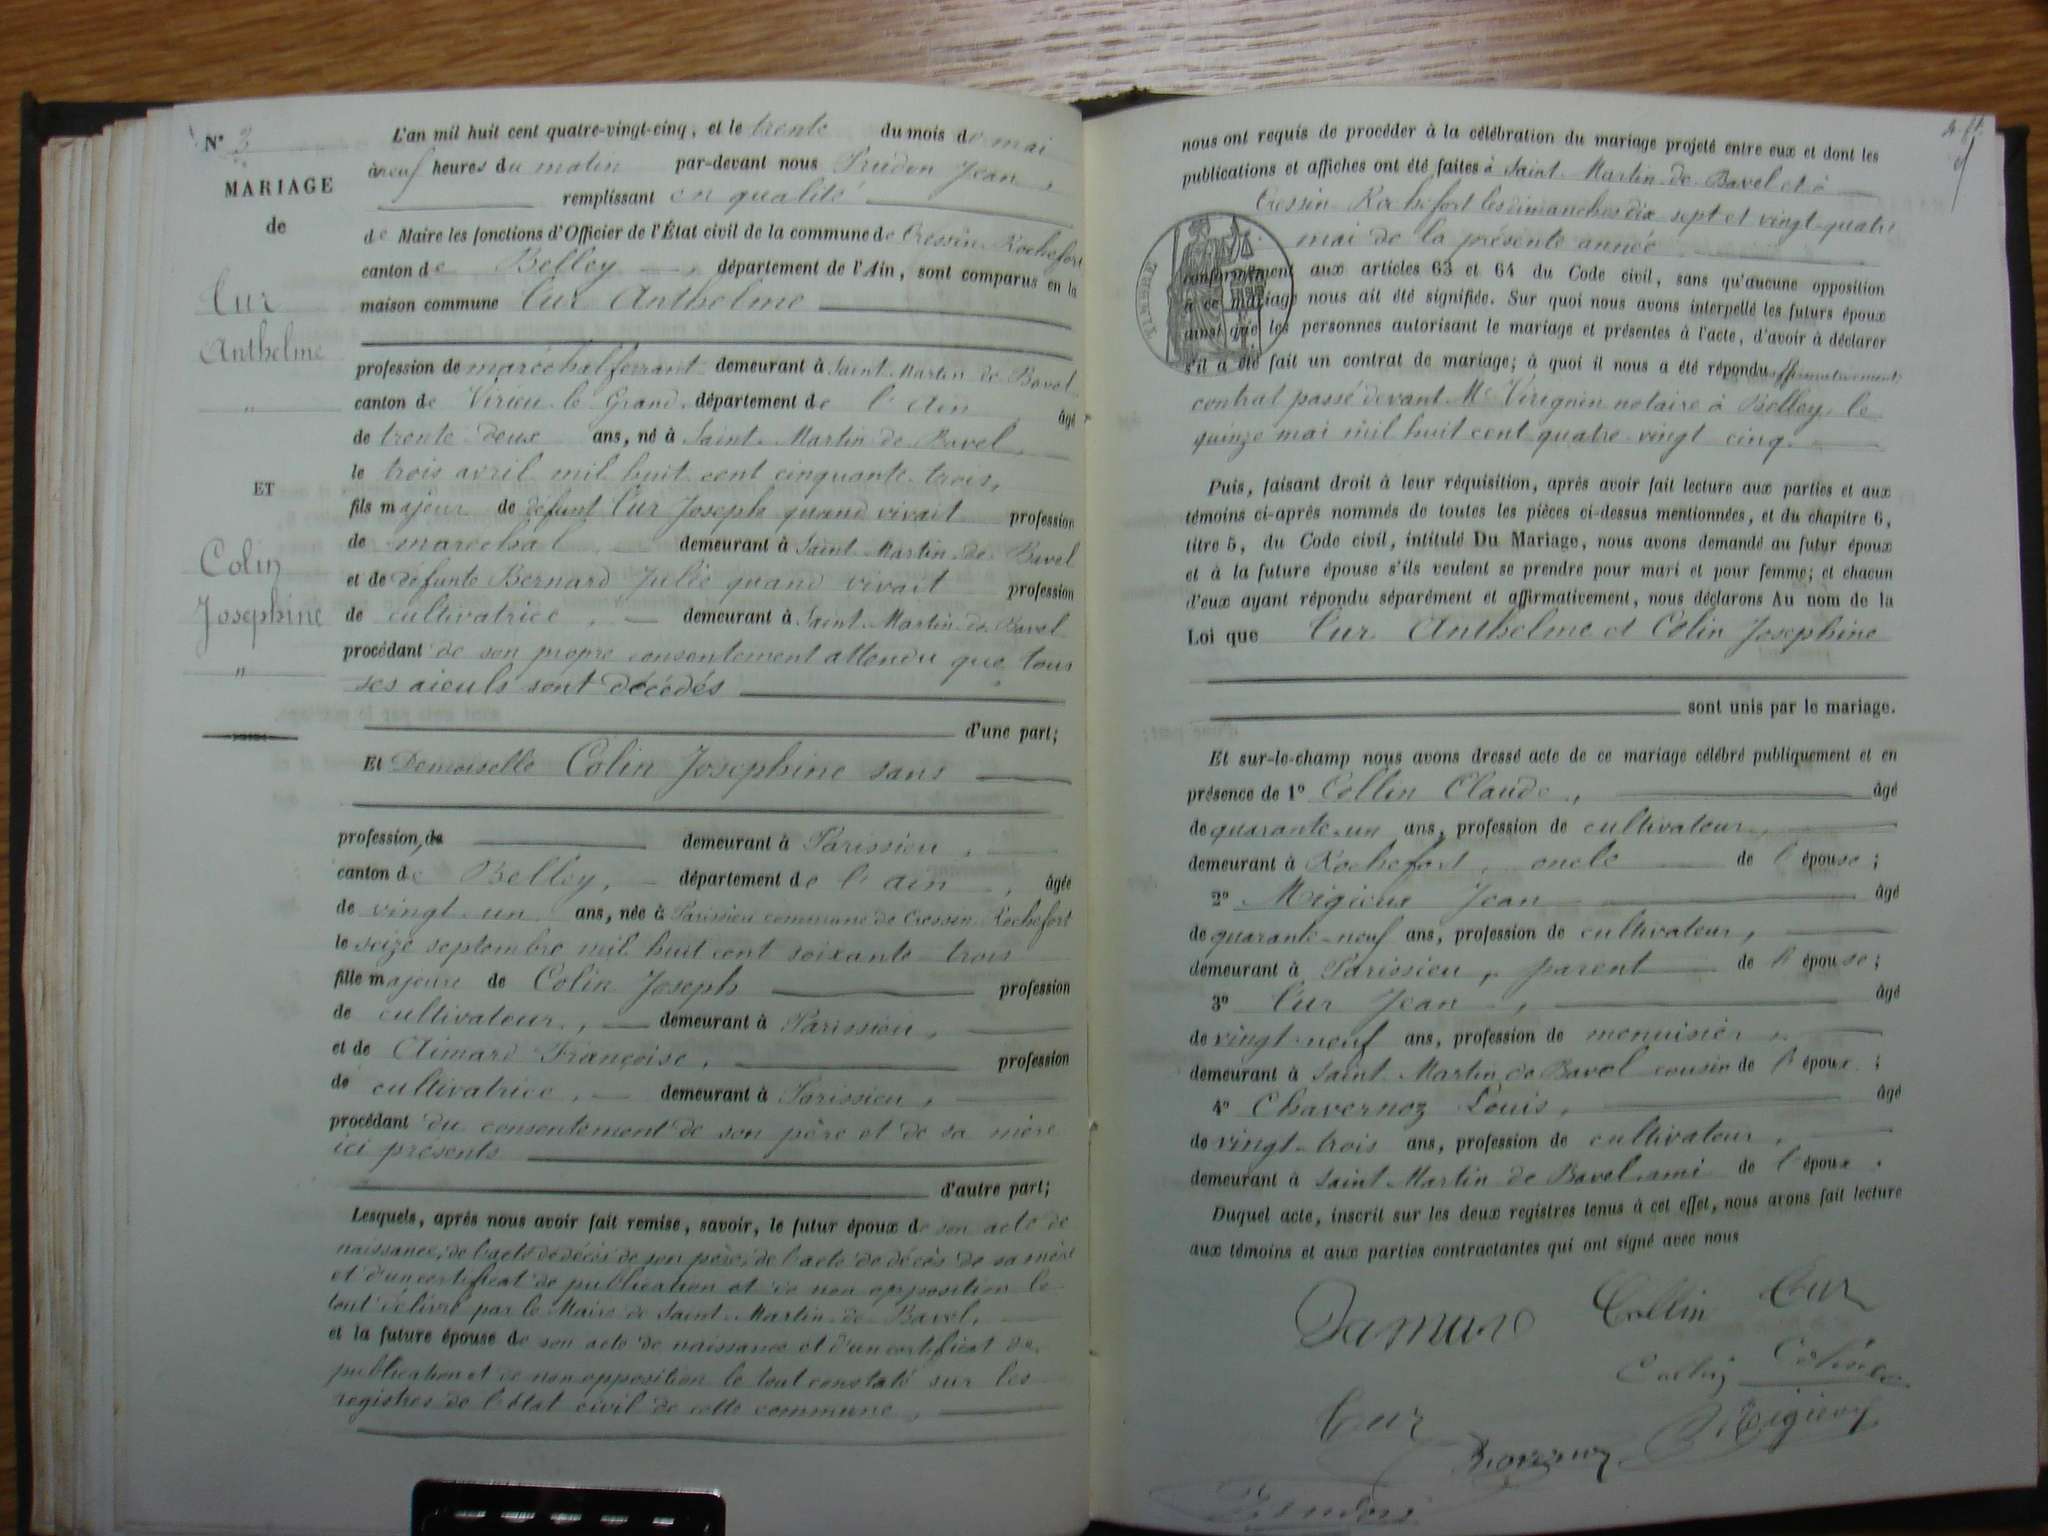 N° 3
MARIAGE
de
Cur
Anthelme
"
ET
Colin
Josephine
"
L'an mil huit cent quatre-vingt-cinq, et le trente du mois de mai
à neuf heures du matin par-devant nous Prudon Jean,
remplissant en qualité
de Maire les fonctions d'Officier de l'État civil de la commune de Cressin Rochefort
canton de Belley, département de l'Ain, sont comparus en la
maison commune Cur Anthelme
profession de maréchal ferrant demeurant à Saint Martin de Bavel
canton de Virieu le Grand département de l'Ain, âgé
de trente deux ans, né à Saint Martin de Bavel,
le trois avril mil huit cent cinquante trois,
fils majeur de défunt Cur Joseph quand vivait profession
de maréchal demeurant à Saint Martin de Bavel
et de défunte Bernard Julie quand vivait profession
de cultivatrice, demeurant à Saint Martin de Bavel
procédant de son propre consentement attendu que tous
ses aieuls sont décédés
d'une part;
Et Demoiselle Colin Josephine sans
profession, de demeurant à Parissieu,
canton de Belley, département de l'ain, âgée
de vingt un ans, née à Parissieu commune de Cressin Rochefort
le seize septembre mil huit cent soixante trois
fille majeure de Colin Joseph profession
de cultivateur, demeurant à Parissieu,
et de Aimard Françoise, profession
de cultivatrice, demeurant à Parissieu,
procédant du consentement de son père et de sa mère
ici présents
d'autre part;
Lesquels, après nous avoir fait remise, savoir, le futur époux de son acte de
naissance, de l'acte de décès de son père, de l'acte de décès de sa mère
et d'un certificat de publication et de non opposition le
tout délivré par le Maire de Saint Martin de Bavel,
et la future épouse de son acte de naissance et d'un certificat de
publication et de non opposition le tout constaté sur les
registres de l'état civil de cette commune,
nous ont requis de procéder à la célébration du mariage projeté entre eux et dont les
publications et affiches ont été faites à Saint Martin de Bavel et à
Cressin Rochefort les dimanches dix sept et vingt quatre
mai de la présente année
TIMBRE
conformément aux articles 63 et 64 du Code civil, sans qu'aucune opposition
à ce mariage nous ait été signifiée. Sur quoi nous avons interpellé les futurs époux
ainsi que les personnes autorisant le mariage et présentes à l'acte, d'avoir à déclarer
s'il a été fait un contrat de mariage; à quoi il nous a été répondu affirmativement
contrat passé devant Me Virignin notaire à Belley le
quinze mai mil huit cent quatre vingt cinq.
Puis, faisant droit à leur réquisition, après avoir fait lecture aux parties et aux
témoins ci-après nommés de toutes les pièces ci-dessus mentionnées, et du chapitre 6,
titre 5, du Code civil, intitulé Du Mariage, nous avons demandé au futur époux
et à la future épouse s'ils veulent se prendre pour mari et pour femme; et chacun
d'eux ayant répondu séparément et affirmativement, nous déclarons Au nom de la
Loi que Cur Anthelme et Colin Josephine
sont unis par le mariage.
Et sur-le-champ nous avons dressé acte de ce mariage célébré publiquement et en
présence de 1° Collin Claude, âgé
de quarante-un ans, profession de cultivateur,
demeurant à Rochefort, oncle de l'épouse;
2° Migieux Jean âgé
de quarante-neuf ans, profession de cultivateur,
demeurant à Parissieu, parent de l'épouse;
3° Cur Jean, âgé
de vingt-neuf ans, profession de menuisier,
demeurant à Saint Martin de Bavel cousin de l'époux;
4° Chavernoz Louis, âgé
de vingt-trois ans, profession de cultivateur,
demeurant à Saint Martin de Bavel ami de l'époux.
Duquel acte, inscrit sur les deux registres tenus à cet effet, nous avons fait lecture
aux témoins et aux parties contractantes qui ont signé avec nous
Collin Cur
Cur